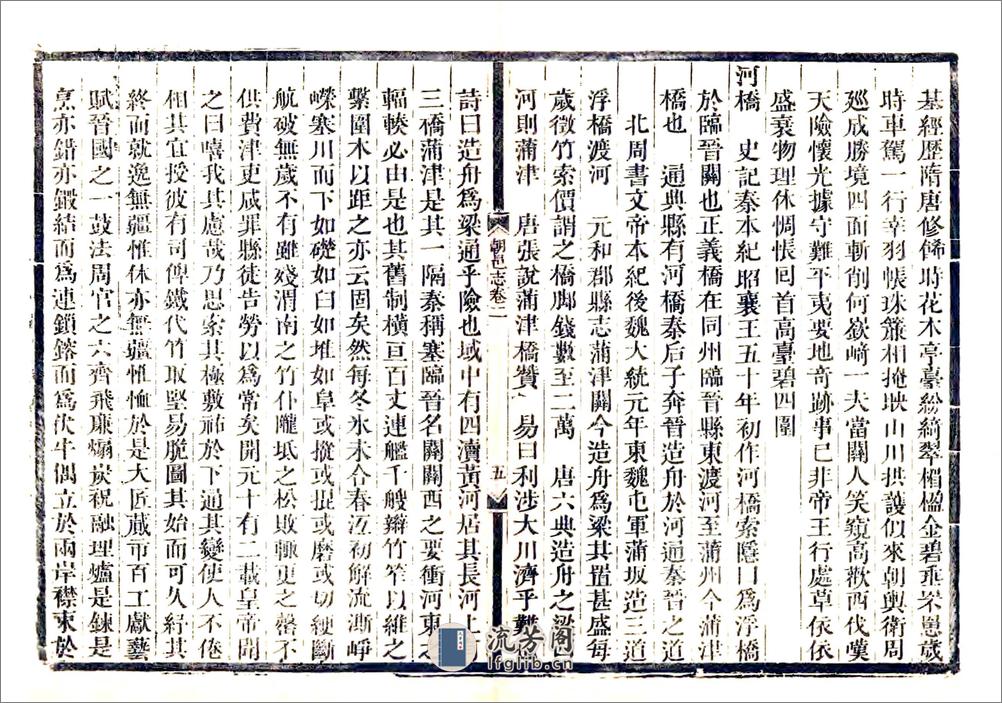 基經歷隋唐修飾時花木亭臺紛綺翠楣楹金碧垂罘罳歲
時車駕一行幸羽帳珠簾相掩映山川拱護似來朝輿衛周
廻成勝境四面斬削何嶔崎一夫當關人笑窺高歡西伐嘆
天險懷光據守難平夷要地奇跡事已非帝王行處草依依
盛衰物理休惆悵回首高臺碧四圍
河橋　史記秦本紀昭襄王五十年初作河橋索隱曰為浮橋
於臨晉關也正義橋在同州臨晉縣東渡河至蒲州今蒲津
橋也　通典縣有河橋秦后子奔晉造舟於河通秦晉之道
北周書文帝本紀後魏大統元年東魏屯軍蒲坂造三道
浮橋渡河　元和郡縣志蒲津關今造舟為梁其置甚盛每
歲徵竹索價謂之橋脚錢數至二萬　唐六典造舟之梁
河則蒲津　唐張說蒲津橋贊　易曰利涉大川濟乎難
朝邑志卷二
五
詩曰造舟為梁通乎險也域中有四瀆黃河居其長河上
三橋蒲津是其一隔秦稱塞臨晉名關關西之要衝河東之
輻輳必由是也其舊制橫亘百丈連艦千艘辮竹笮以維之
繫圍木以距之亦云固矣然每冬氷未合春冱初解流澌崢
嶸塞川而下如礎如臼如堆如阜或摐或摼或磨或切綆斷
航破無歲不有雖殘渭南之竹仆隴坻之松敗輙更之罄不
供費津吏咸罪縣徒告勞以為常矣開元十有二載皇帝聞
之曰嘻我其慮哉乃思索其極敷祐於下通其變使人不倦
相其宜授彼有司俾鐵代竹取堅易脆圖其始而可久紓其
終而就逸無疆惟休亦無疆惟恤於是大匠蕆事百工獻藝
賦晉國之一鼓法周官之六齊飛廉煽炭祝融理爐是鍊是
烹亦錯亦鍛結而為連鎖鎔而為伏牛偶立於兩岸襟束於
流芳阁
lfglib.cn